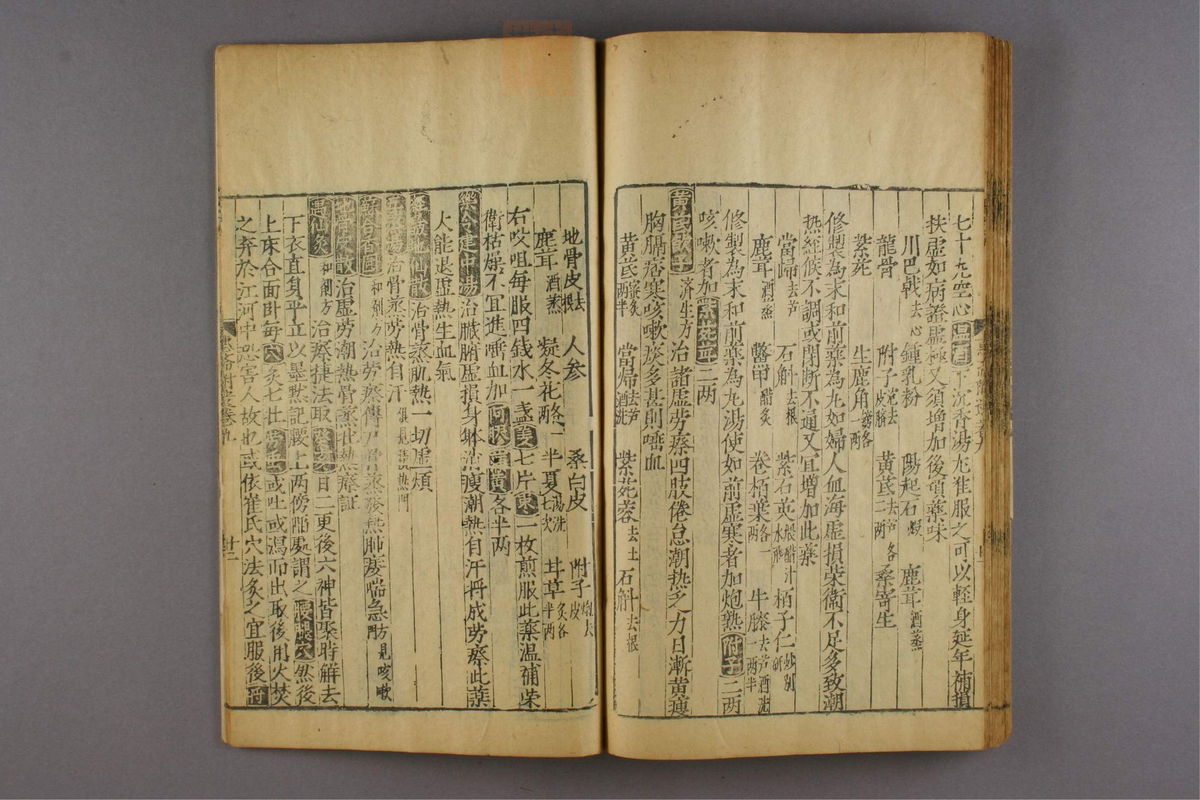 七十九空心温酒下沉香湯尤佳服之可以輕身延年補損
扶虛如病證虛極又須增加後項藥味
川巴戟去心 鍾乳粉 陽起石煆 鹿茸酒蒸
龍骨 附子炮去皮臍 黃芪去芦各二两 桑寄生
紫菀 生鹿角鎊各一两
修製為末和前藥為丸如婦人血海虛損荣衛不足多致潮
热經候不調或閉断不通又宜增加此藥
當歸去芦 石斛去根 紫石英 栢子仁炒别研
鹿茸酒蒸 鱉甲醋炙 卷栢葉各一两 牛膝去芦酒洗一两半
修製為末和前藥為丸湯使如前虛寒者加炮熟附子二两
咳嗽者加紫菀茸二两
黃芪飲子濟生方治諸虛劳瘵四肢倦怠潮热乏力日漸黃瘦
胸膈痞寒咳嗽痰多甚則嗜血
黃芪蜜炙两半 當歸去芦酒洗 紫菀蓉去土 石斛去根
地骨皮去根 人参 桑白皮 附子炮去皮
鹿茸酒蒸 欵冬花酪一 半夏湯洗七次 甘草炙各半两
右咬咀每服四錢水一盞姜七片枣一枚煎服此藥温補荣
衛枯燥不宜進嗜血加阿胶蒲黄各半两
樂令建中湯治臓腑虛損身体消瘦潮熱自汗将成劳瘵此藥
大能退虛熱生血氣
地仙散治骨蒸肌熱一切虛煩
治骨蒸劳熱自汗
和劑方治劳瘵傳尸骨蒸發熱肺痿喘急方見咳嗽門
地骨皮散治虛劳潮熱骨蒸壮熱瘵証
遇仙灸和劑方治瘵捷法取癸亥日二更後六神皆聚時解去
下衣直身平立以墨點記腰上两傍陷處謂之腰眼穴然後
上床合面卧每穴灸七壮劳虫或吐或瀉而出取後用火焚
之弃於江河中恐害人故也或依崔氏穴法灸之宜服後将